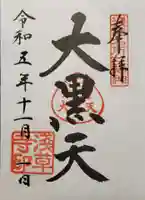 奉拝
大黒天
令和五年十一月 日
浅草